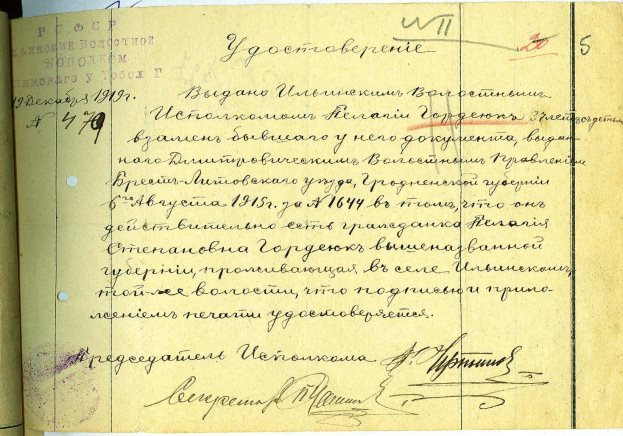 VII
20
5
РСФСР
Ильинский Волостной
Исполком
Ишимскаго у Тобол Г
19 Декабря 1919 г.
N 479
Удостоверенiе
Выдано Ильинским Волостным
Исполкомом Пелагiи Гордеюкъ 37 лет
взамен бывшаго у него документа, выдан-
наго Дмитровическим Волостным Правленiем
Брест-Литовскаго уезда, Гродненской губернiи
6го Августа 1915 г. за N 1644 в том, что он
действительно есть гражданка Пелагiя
Степановна Гордеюкъ вышеназванной
губернiи, проживающая в селе Ильинском,
той-же волости, что подписью и прило-
жением печати удостоверяется.
Председатель Исполкома
Секретарь